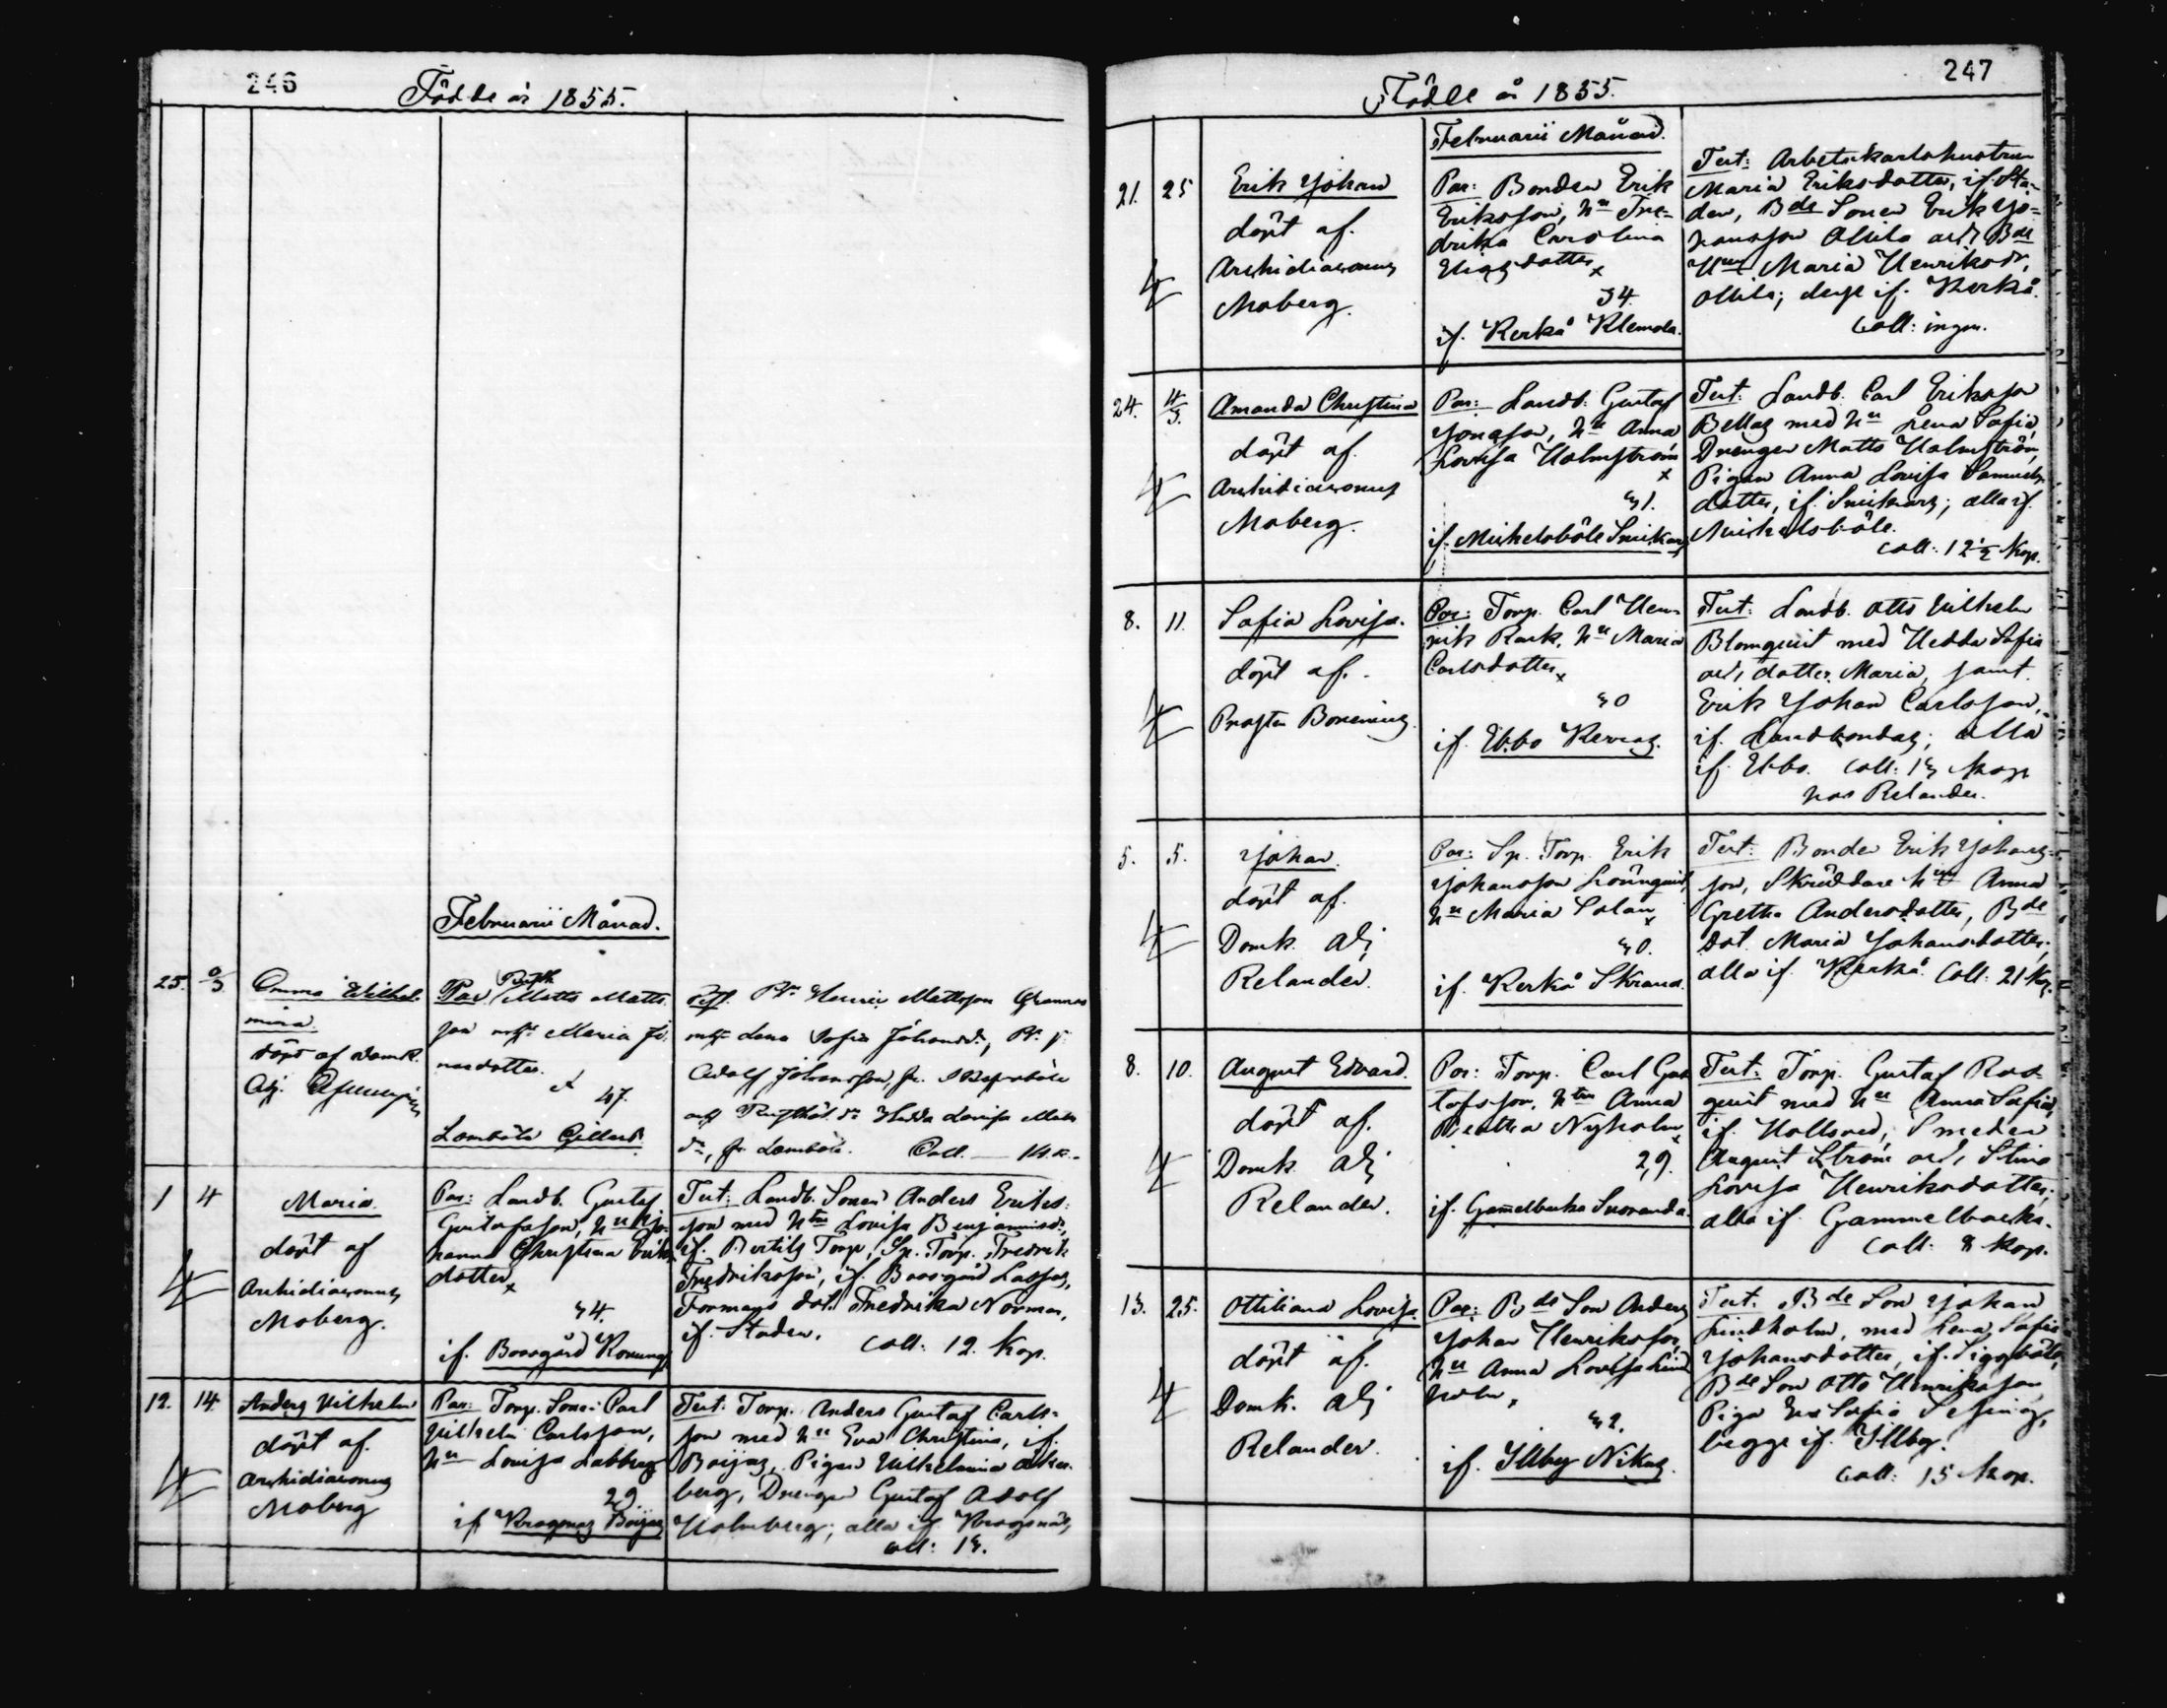 246
Födde år 1855.
Februarii Månad.
25.
Emma Wilhel-
mina
döpt af Domk.
Adj.
Par Matts Matts
son Maria Jo-
nasdotter.
47.
Lombola Gillars
Mattsson
Lena Sofia Johansd.,
Adolf Johansson, fr.
Hedda Lovisa Matts
dr, fr Lomböle. Coll.
1 4
Maria.
döpt af
Archidiaconus
Moberg.
Par: Landb. Gustaf
Gustafsson, hu Jo-
hanna Christina Eriks
dotter
34.
if. Boesgård Konungs
Test: Landb. Sonen Anders Eriks-
son med hru Lovisa Benjaminsdr,
if. Bertils Torp, Sp. Torp. Fredrik
Fredriksson, if. Boesgård Lassas,
Formans dot. Fredrika Norman,
if. Staden. Coll: 12. Kop.
12. 14.
Anders Vilhelm
döpt af.
Archidiaconus
Moberg
Par: Torp. Sonen Carl
Vilhelm Carlsson,
hu Lovisa Labberg
29.
if Krogsnäs Böijas
Test. Torp. Anders Gustaf Carls-
son med hu Eva Christina, if.
Böijas, Pigan Vilhelmina Åker-
berg, Drengen Gustaf Adolf
Holmberg; alla if. Krogsnäs,
Coll: 13.
247
Födde år 1855.
Februarii Månad.
21. 25
Erik Johan
döpt af.
Archidiaconus
Moberg.
Par: Bonden Erik
Eriksson, hu Fre-
drika Carolina
dotter
34.
if. Kerkå Klemola.
Test: Arbetskarlshustrun
Maria Eriksdotter, if. Sta-
den, Bde Sonen Erik Jo-
hansson Ollila och Bde
Hun Maria Henriksdr,
Ollila; desse if. Kerkå.
Coll: ingen.
24. 4/3.
Amanda Christina
döpt af.
Archidiaconus
Moberg.
Par: Landb. Gustaf
Jonasson, hu Anna
Lovisa Holmström
31.
if. Mickelsböle Snikars
Test. Landb. Carl Eriksson
Bellas med hu Lena Sofia,
Drengen Matts Holmström,
Pigan Anna Lovisa Samuels
dotter, if. Snikars; alla if.
Mickelsböle.
Coll: 12½ Kop.
8. 11.
Sofia Lovisa.
döpt af.
Prosten Borenius.
Par: Torp. Carl Hen-
rik Rask, hu Maria
Carlsdotter
30
if. Ebbo Kervas.
Test: Landb. Otto Vilhelm
Blomquist med Hedda Sofia
och dotter Maria, samt
Erik Johan Carlsson,
if. Landbondas; alla
if Ebbo. Coll: 13 Kop
hos Relander.
5. 5.
Johan.
döpt af.
Domk. Adj
Relander.
Par: Sp. Torp. Erik
Johansson Lönnquist,
hu Maria Solan
30.
if. Kerkå Skraua.
Test: Bonden Erik Johans-
son, Skräddare hun Anna
Greta Andersdotter, Bde
Dot. Maria Johansdotter,
alla if. Kerkå. Coll: 21 Kop.
8. 10.
August Edvard.
döpt af.
Domk. Adj
Relander.
Par: Torp. Carl Gus
tafsson, htru Anna
Beatha Nyholm
29.
if. Gammelbacka Suoranda.
Test: Torp. Gustaf Ros-
quist med hu Anna Sofia,
if. Hallsved; Smeden
August Ström och Stina
Lovisa Henriksdotter;
alla if. Gammelbacka.
Coll: 8 Kop.
13. 25.
Ottiliana Lovisa.
döpt af.
Domk. Adj
Relander.
Par: Bde Son Anders
Johan Henriksson,
hu Anna Lovisa Lind
holm,
32.
if. Illby Nikus.
Test. Bde Son Johan
Lindholm, med Lena Sofia
Johansdotter, if. Siggböle,
Bde Son Otto Henriksson
Piga Eva Sofia
begge if. Illby.
Coll: 15 Kop.